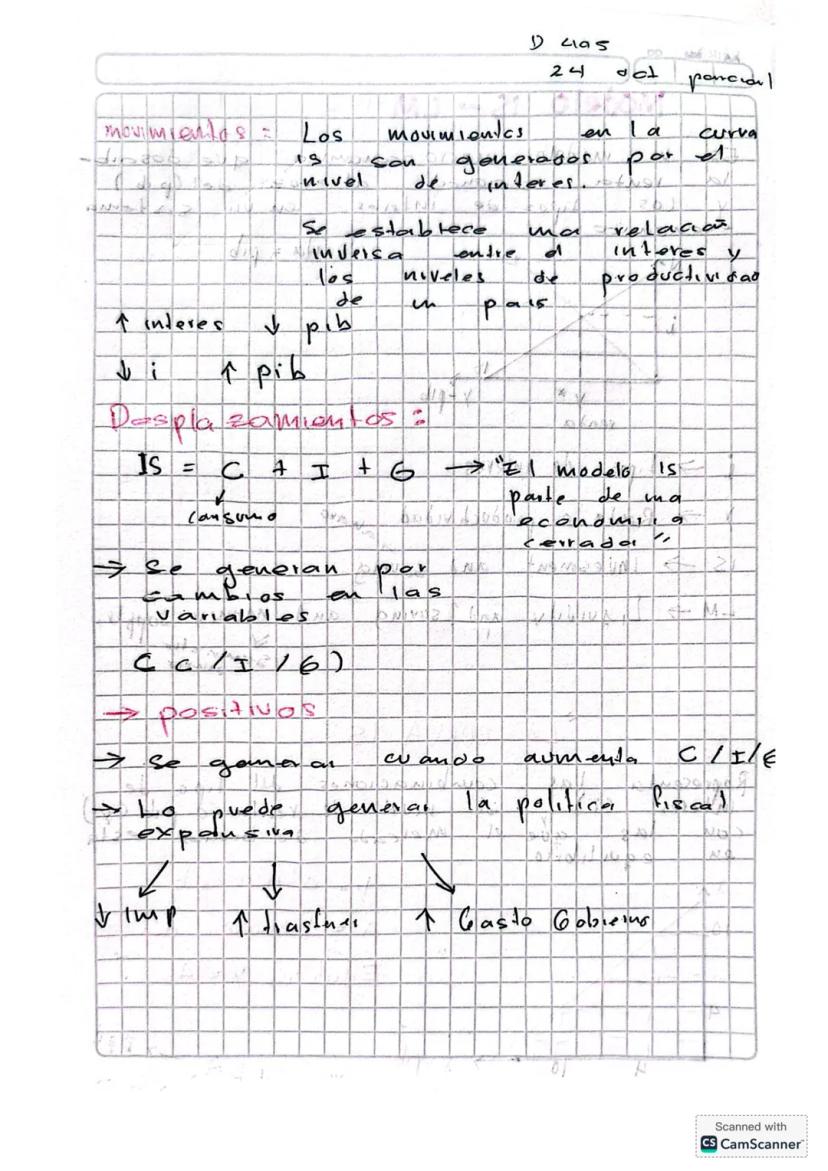 D 4 as
24 oct parcial
movimientos = Los movimientos en la curva
is son generados por el
nivel de interes.
Se establece una relación
inversa entre el interes y
los niveles de productividad
de un pais
↑ interes ↓ pib
↓ i ↑ pib
Desplazamientos :
IS = C + I + G → "El modelo IS
parte de una
consumo
economia
cerrada"
→ Se generan por
cambios en las
variables
C c / I / G )
→ positivos
→ Se generan cuando aumenta C / I / G
→ Lo puede generar la politica fiscal
expansiva
↓ imp ↑ trasfer ↑ Gasto Gobierno
Scanned with
CS CamScanner